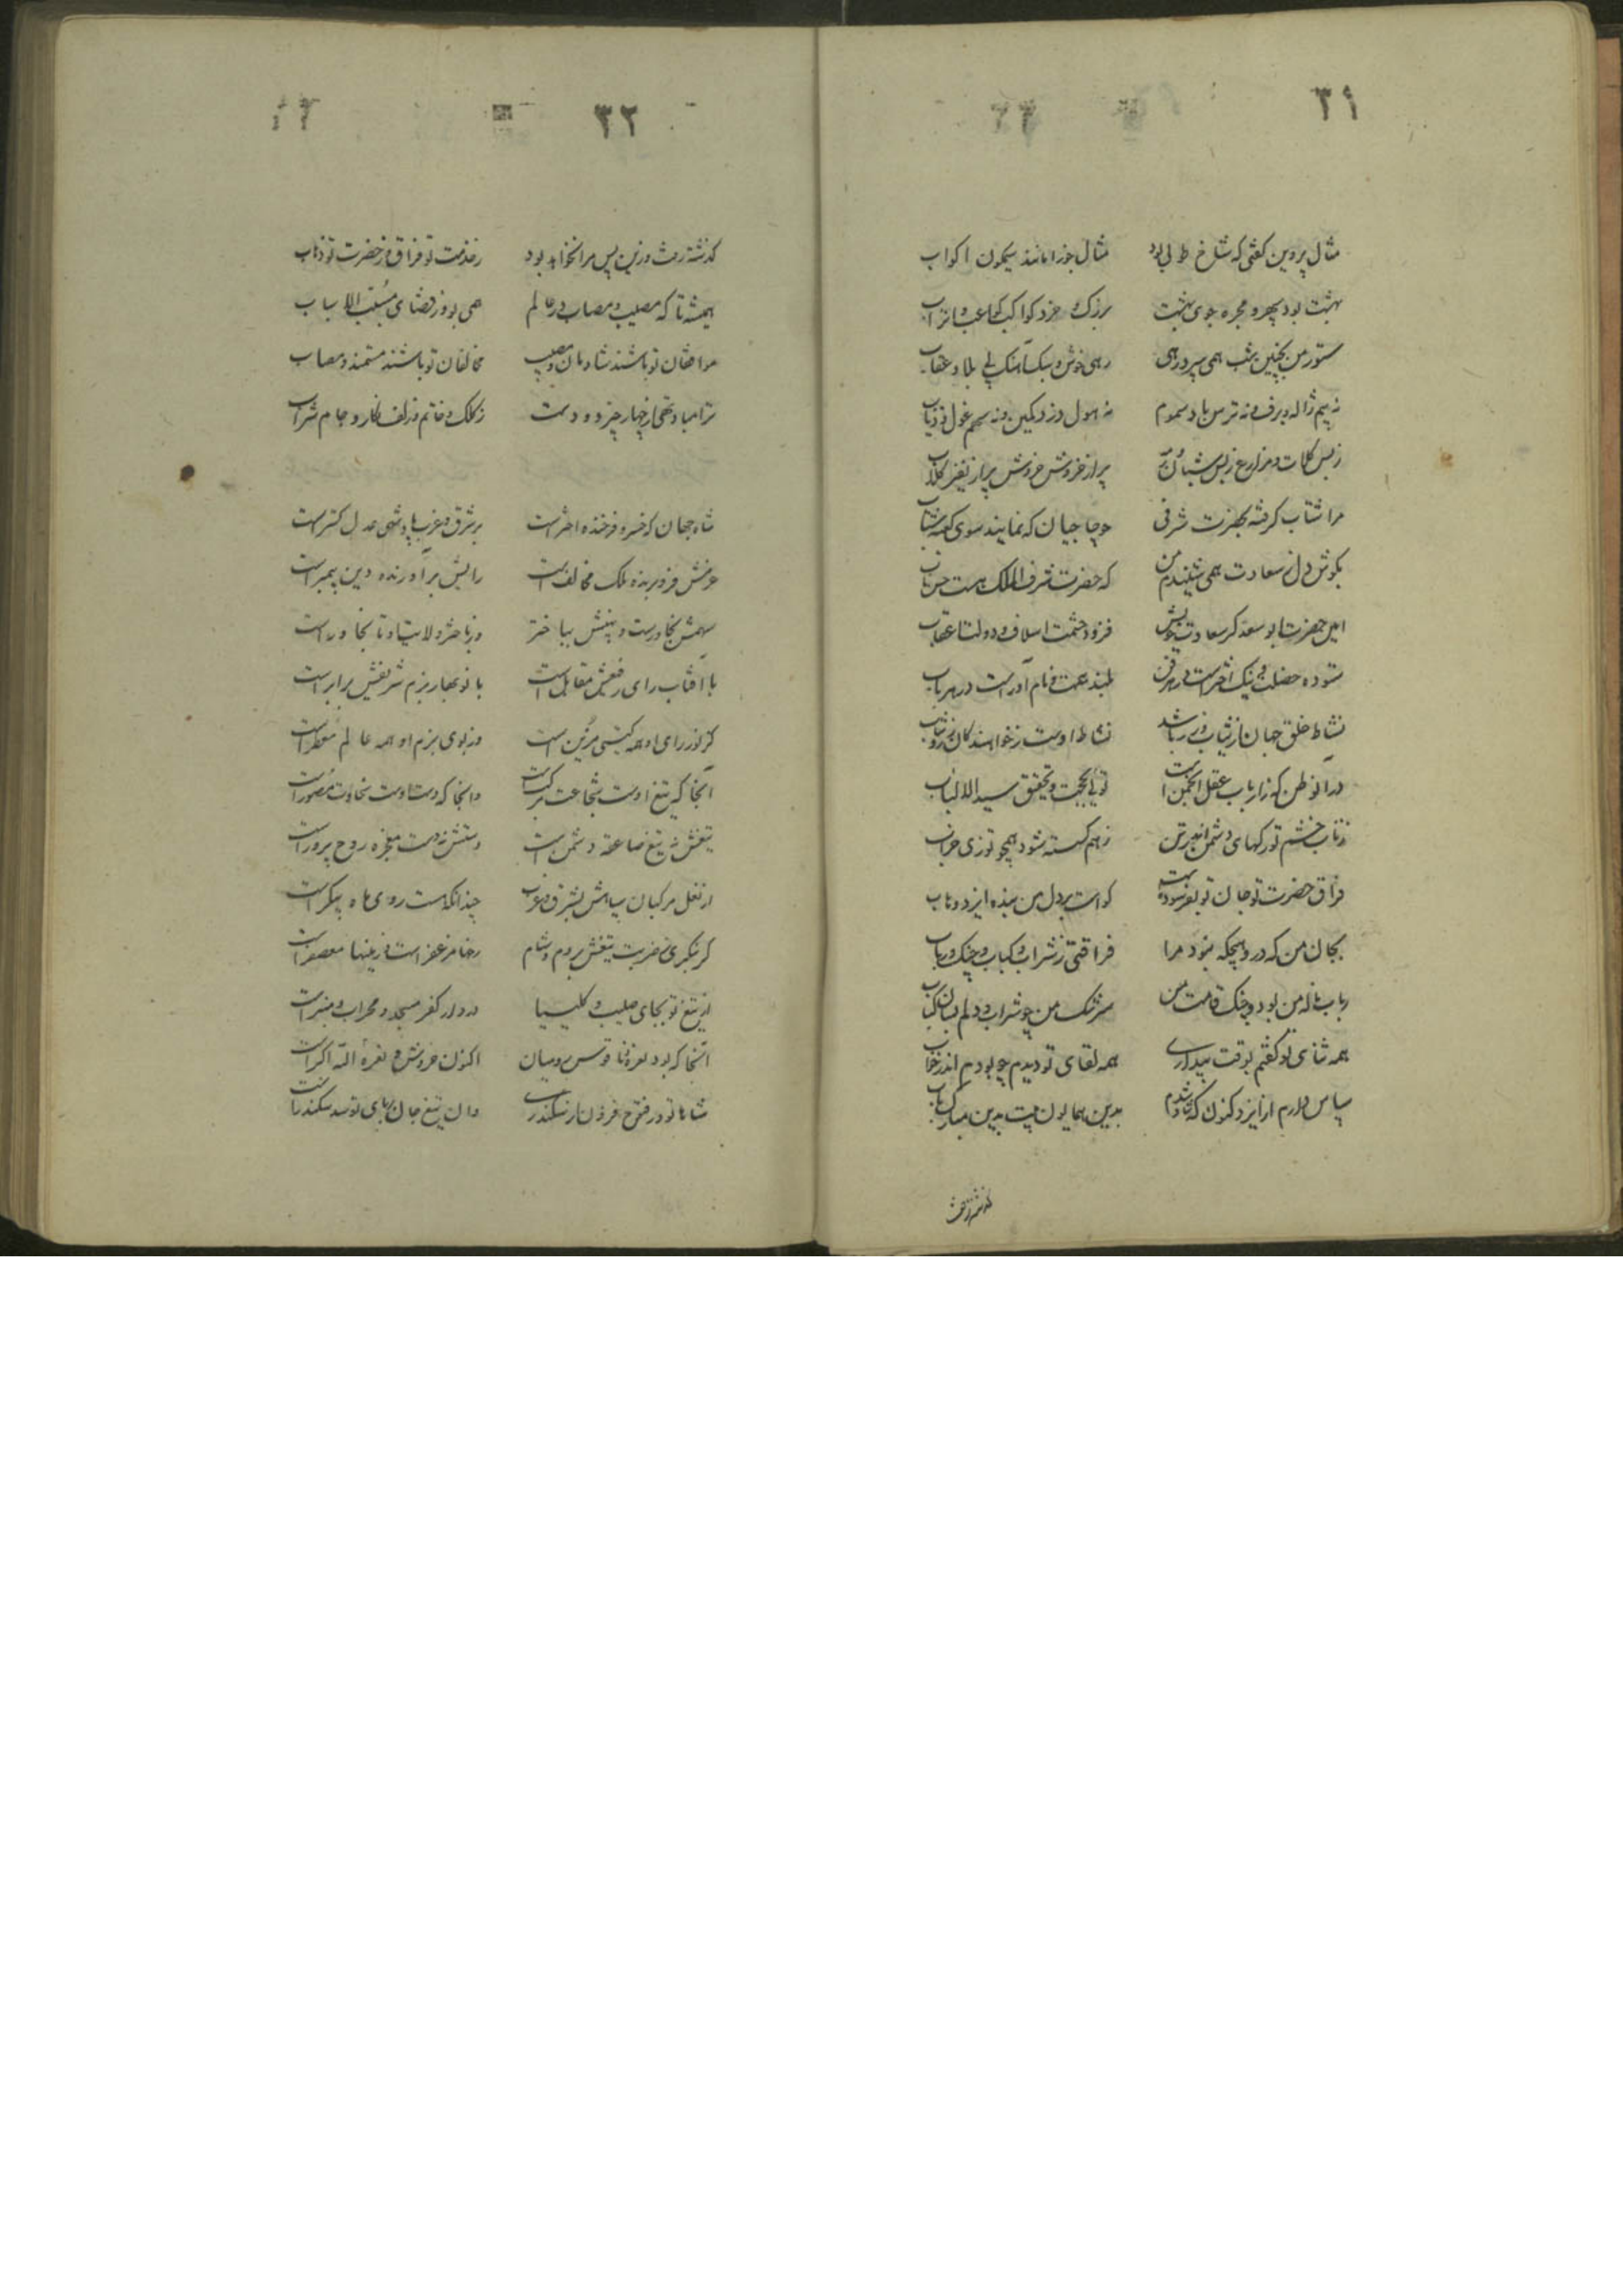 ۳۱
مثال پروین گفتی که شاخ طوبی بود مثال جوزا مانند سیمگون اکواب
بهشت بود سپهر و مجره جوی بهشت بزرگ و خرد کواکب کواعب و اتراب
ستور من بچنین شب همی سپرد رهی رهی خوش و سبک آهنگ بی بلا و عقاب
نه بیم ژاله و برف و نه ترس باد سموم نه هول دزد و کمین و نه سهم غول و ذیاب
ز بس کلات و مزارع ز بس شبان و پر از خروش خروش و پر از نفیر کلاب
مرا شتاب گرفته بحضرت شرفی چو حاجیان که نمایند سوی کعبه شتاب
بگوش دل ز سعادت همی شنیدم من که حضرت شرف الملک هست
امین حضرت ابو سعد کز سعادت خویش فزود حشمت اسلاف و دولت اعقاب
ستوده خصلت و نیک اختر است در هر فن بلند همت و نام آور است در هر باب
نشاط خلق جهان از ثیاب و زر باشد نشاط اوست ز خواهندگان زر و ثیاب
در آن وطن که ز ارباب عقل انجمن است توئی بحجت و تحقیق سید الالباب
ز تاب خشم تو رگهای دشمن اندر تن ز هم گسسته شود همچو توزی
فراق حضرت تو جان تو بفرسوده است گواست بر دل من بنده ایزد وهاب
بجان من که در و هیچگه نبود مرا فراقتی ز شراب و کباب و چنگ و رباب
رباب ناله من بود و چنگ قامت من سرشک من چو شراب و دلم بسان کباب
همه ثنای تو گفتم بوقت بیداری همه لقای تو دیدم چو بودم اندر خواب
سپاس دارم از ایزد کنون که شاد شدم بدین همایون بیت بدین مبارک باب
گذشته رفت
۳۲
گذشته رفت و زین پس مرا نخواهد بود ز خدمت تو فراق و ز حضرت تو ذهاب
همیشه تا که مصیب و مصاب در عالم همی بود ز قضای مسبب الاسباب
موافقان تو باشند شادمان و مصیب مخالفان تو باشند مستمند و مصاب
ترا مباد تهی از چهار چیز دو دست ز کلک و خاتم و زلف نگار و جام شراب
شاه جهان که خسرو فرخنده اختر است بر شرق و غرب پادشهی عدل گستر است
عزمش فرو برنده ملک مخالف است رایش برآورنده دین پیمبر است
سهمش بخاور است و نهیبش بباختر وز باختر ولایت او تا بخاور است
با آفتاب رای رفیعش مقابل است با نوبهار بزم شریفش برابر است
کز نور رای او همه گیتی مزین است وز بوی بزم او همه عالم معطر است
آنجا که تیغ اوست شجاعت مرکب است وانجا که دست اوست سخاوت مصور است
تیغش نه تیغ صاعقه دشمن است دستش نه دست معجزه روح پرور است
از نعل مرکبان سپاهش بشرق و غرب چندانکه هست روی ماه پیکر است
گر بنگری ز ضربت تیغش بروم و شام رخها مزعفر است و زمینها معصفر است
از تیغ تو بجای صلیب و کلیسیا در دار کفر مسجد و محراب و منبر است
آنجا که بود نعره ناقوس رومیان اکنون خروش و نعره الله اکبر است
شاها تو در فتوح فزون از سکندری وان تیغ جان ربای تو سد سکندر است